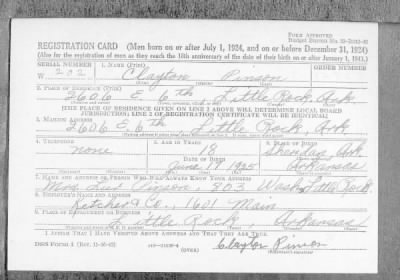 FORM APPROVED
REGISTRATION CARD (Men born on or after July 1, 1924, and on or before December 31, 1924)
(Also for the registration of men as they reach the 18th anniversary of the date of their birth on or after January 1, 1943.)
SERIAL NUMBER 1. NAME (Print) ORDER NUMBER
W 202 Clayton Pinson
2. PLACE OF RESIDENCE (Print)
2606 E 6th Little Rock Ark
[THE PLACE OF RESIDENCE GIVEN ON LINE 2 ABOVE WILL DETERMINE LOCAL BOARD
JURISDICTION; LINE 2 OF REGISTRATION CERTIFICATE WILL BE IDENTICAL]
3. MAILING ADDRESS
2606 E. 6th Little Rock, Ark
4. TELEPHONE 5. AGE IN YEARS 6. PLACE OF BIRTH
none 18 Sheridan, Ark.
DATE OF BIRTH
June 19 1925 Arkansas
7. NAME AND ADDRESS OF PERSON WHO WILL ALWAYS KNOW YOUR ADDRESS
Mrs. Pinson 803 Wash, Little Rock
8. EMPLOYER'S NAME AND ADDRESS
Ketcher & Co., 1601 Main
9. PLACE OF EMPLOYMENT OR BUSINESS
Little Rock, Arkansas
I AFFIRM THAT I HAVE VERIFIED ABOVE ANSWERS AND THAT THEY ARE TRUE.
DSS Form 1 (Rev. 11-16-42) (OVER) Clayton Pinson